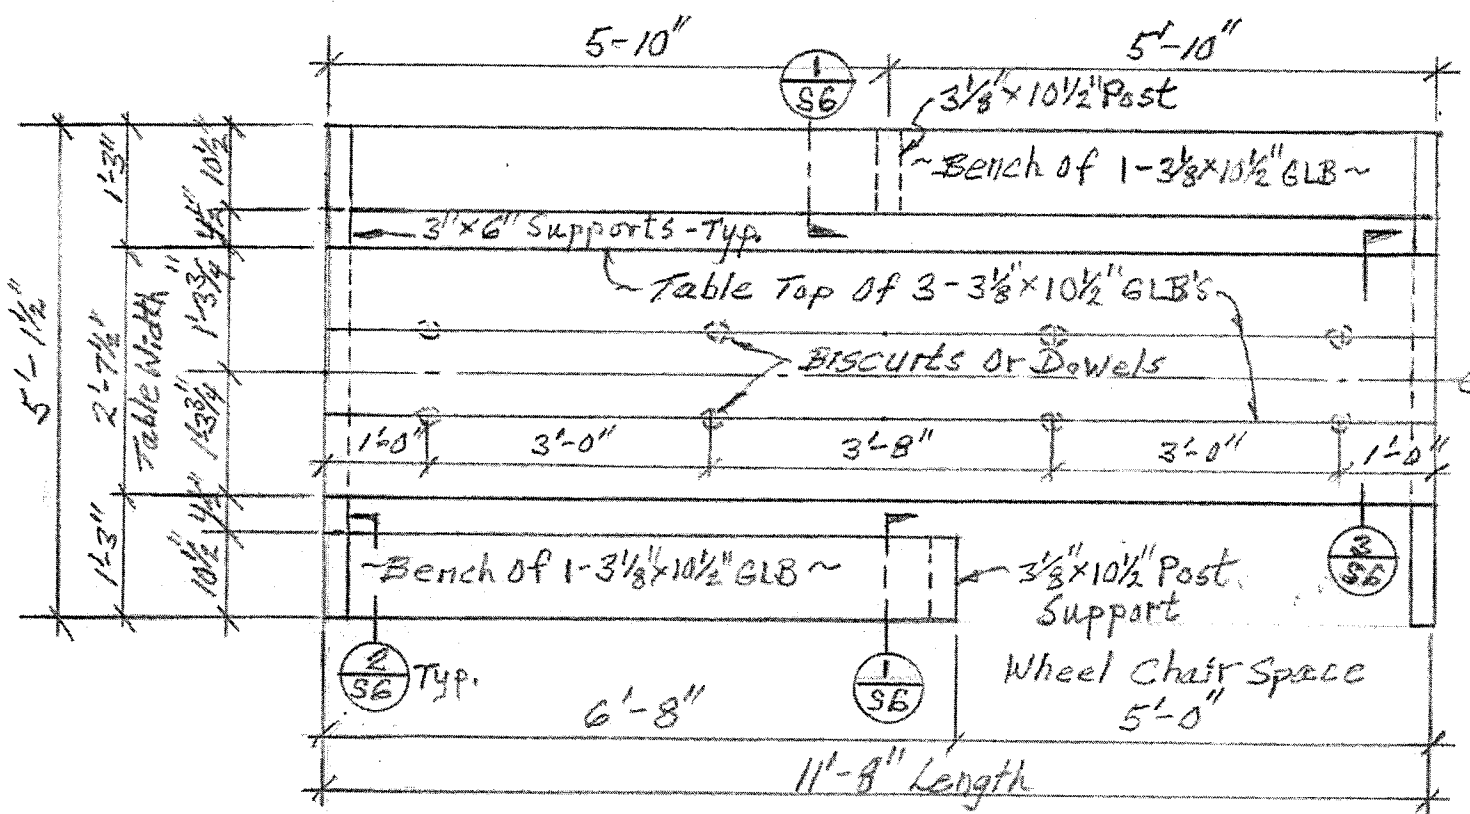 5-10"
5'-10"
1
S6
3⅛"×10½" Post
~Bench of 1-3⅛×10½" GLB~
3"×6" Supports-Typ.
Table Top Of 3-3⅛"×10½" GLB's
Biscuits Or Dowels
1'-0"
3'-0"
3'-8"
3'-0"
1'-0"
5'-1½"
1'-3"
2'-7½"
Table Width
1'-3"
10½"
4½"
1'-3¾"
1'-3¾"
4½"
10½"
~Bench Of 1-3⅛"×10½" GLB~
3⅛"×10½" Post
Support
3
S6
2
S6
Typ.
1
S6
Wheel Chair Space
6'-8"
5'-0"
11'-8" Length